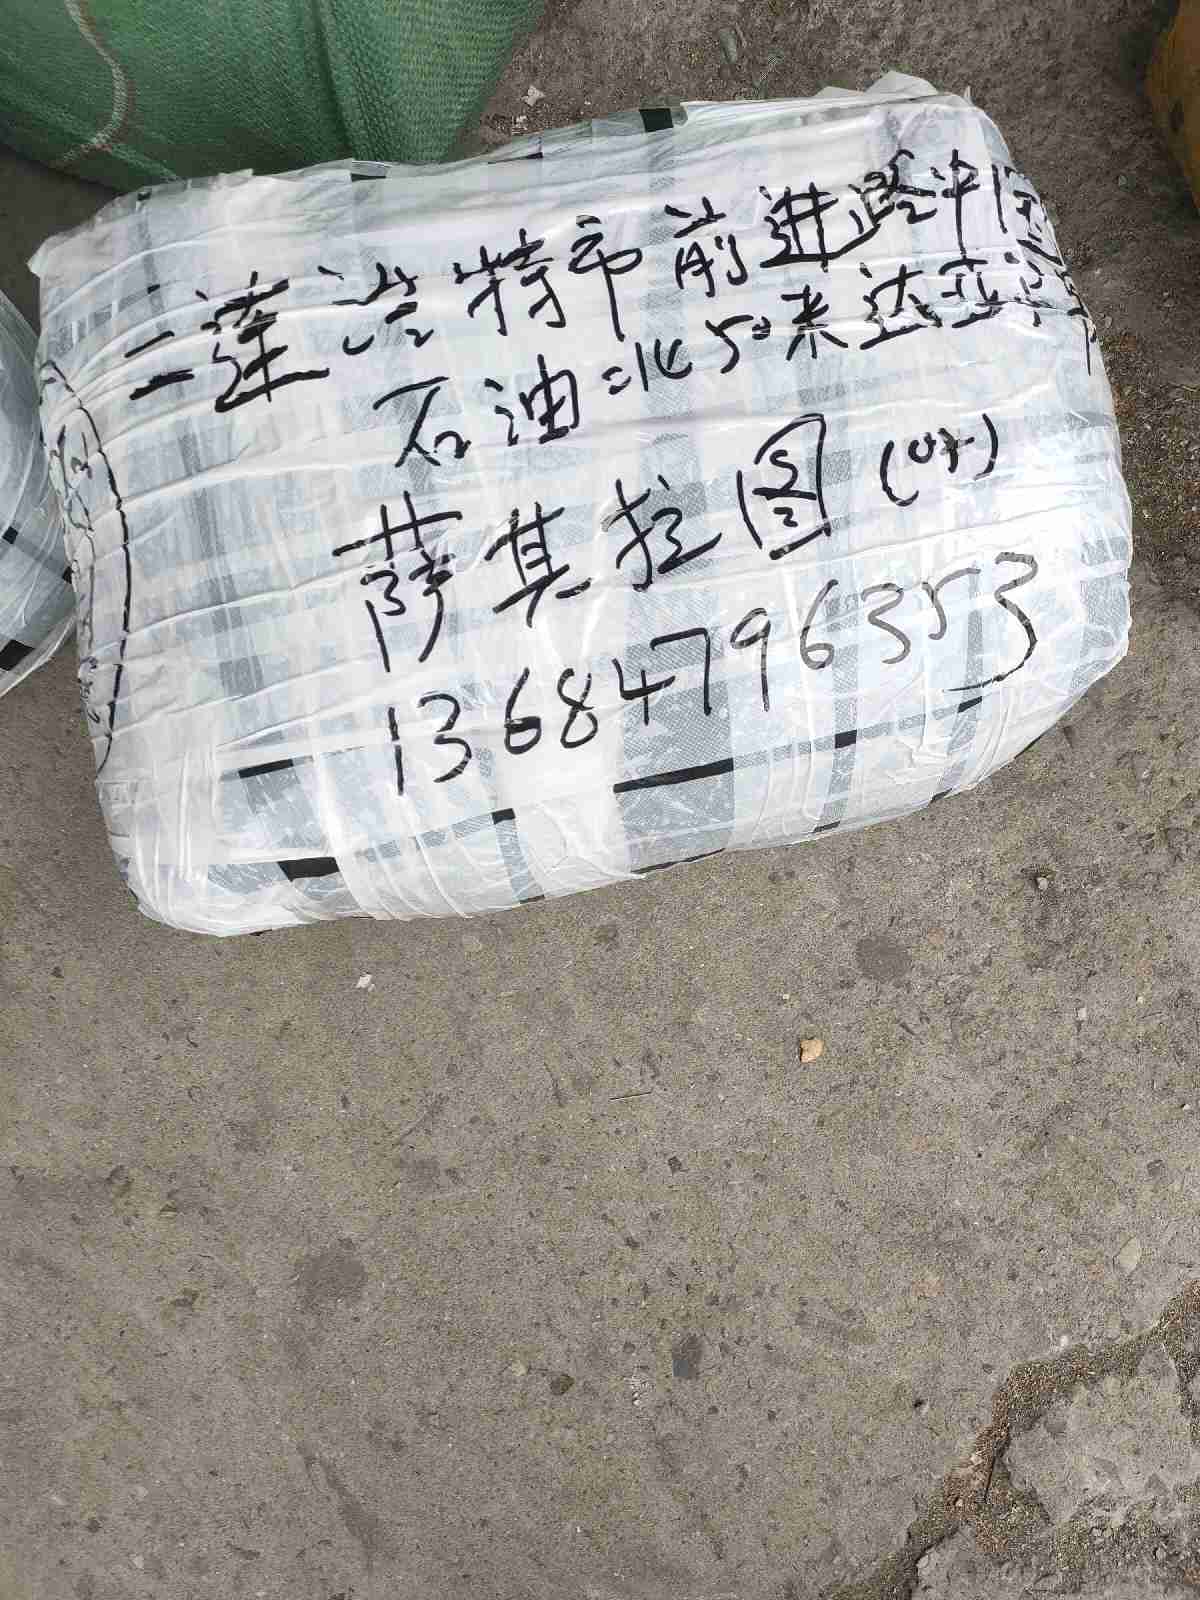 二莲浩特市前进路中国
石油北50米达亚
萨其拉图(收)
13684796353